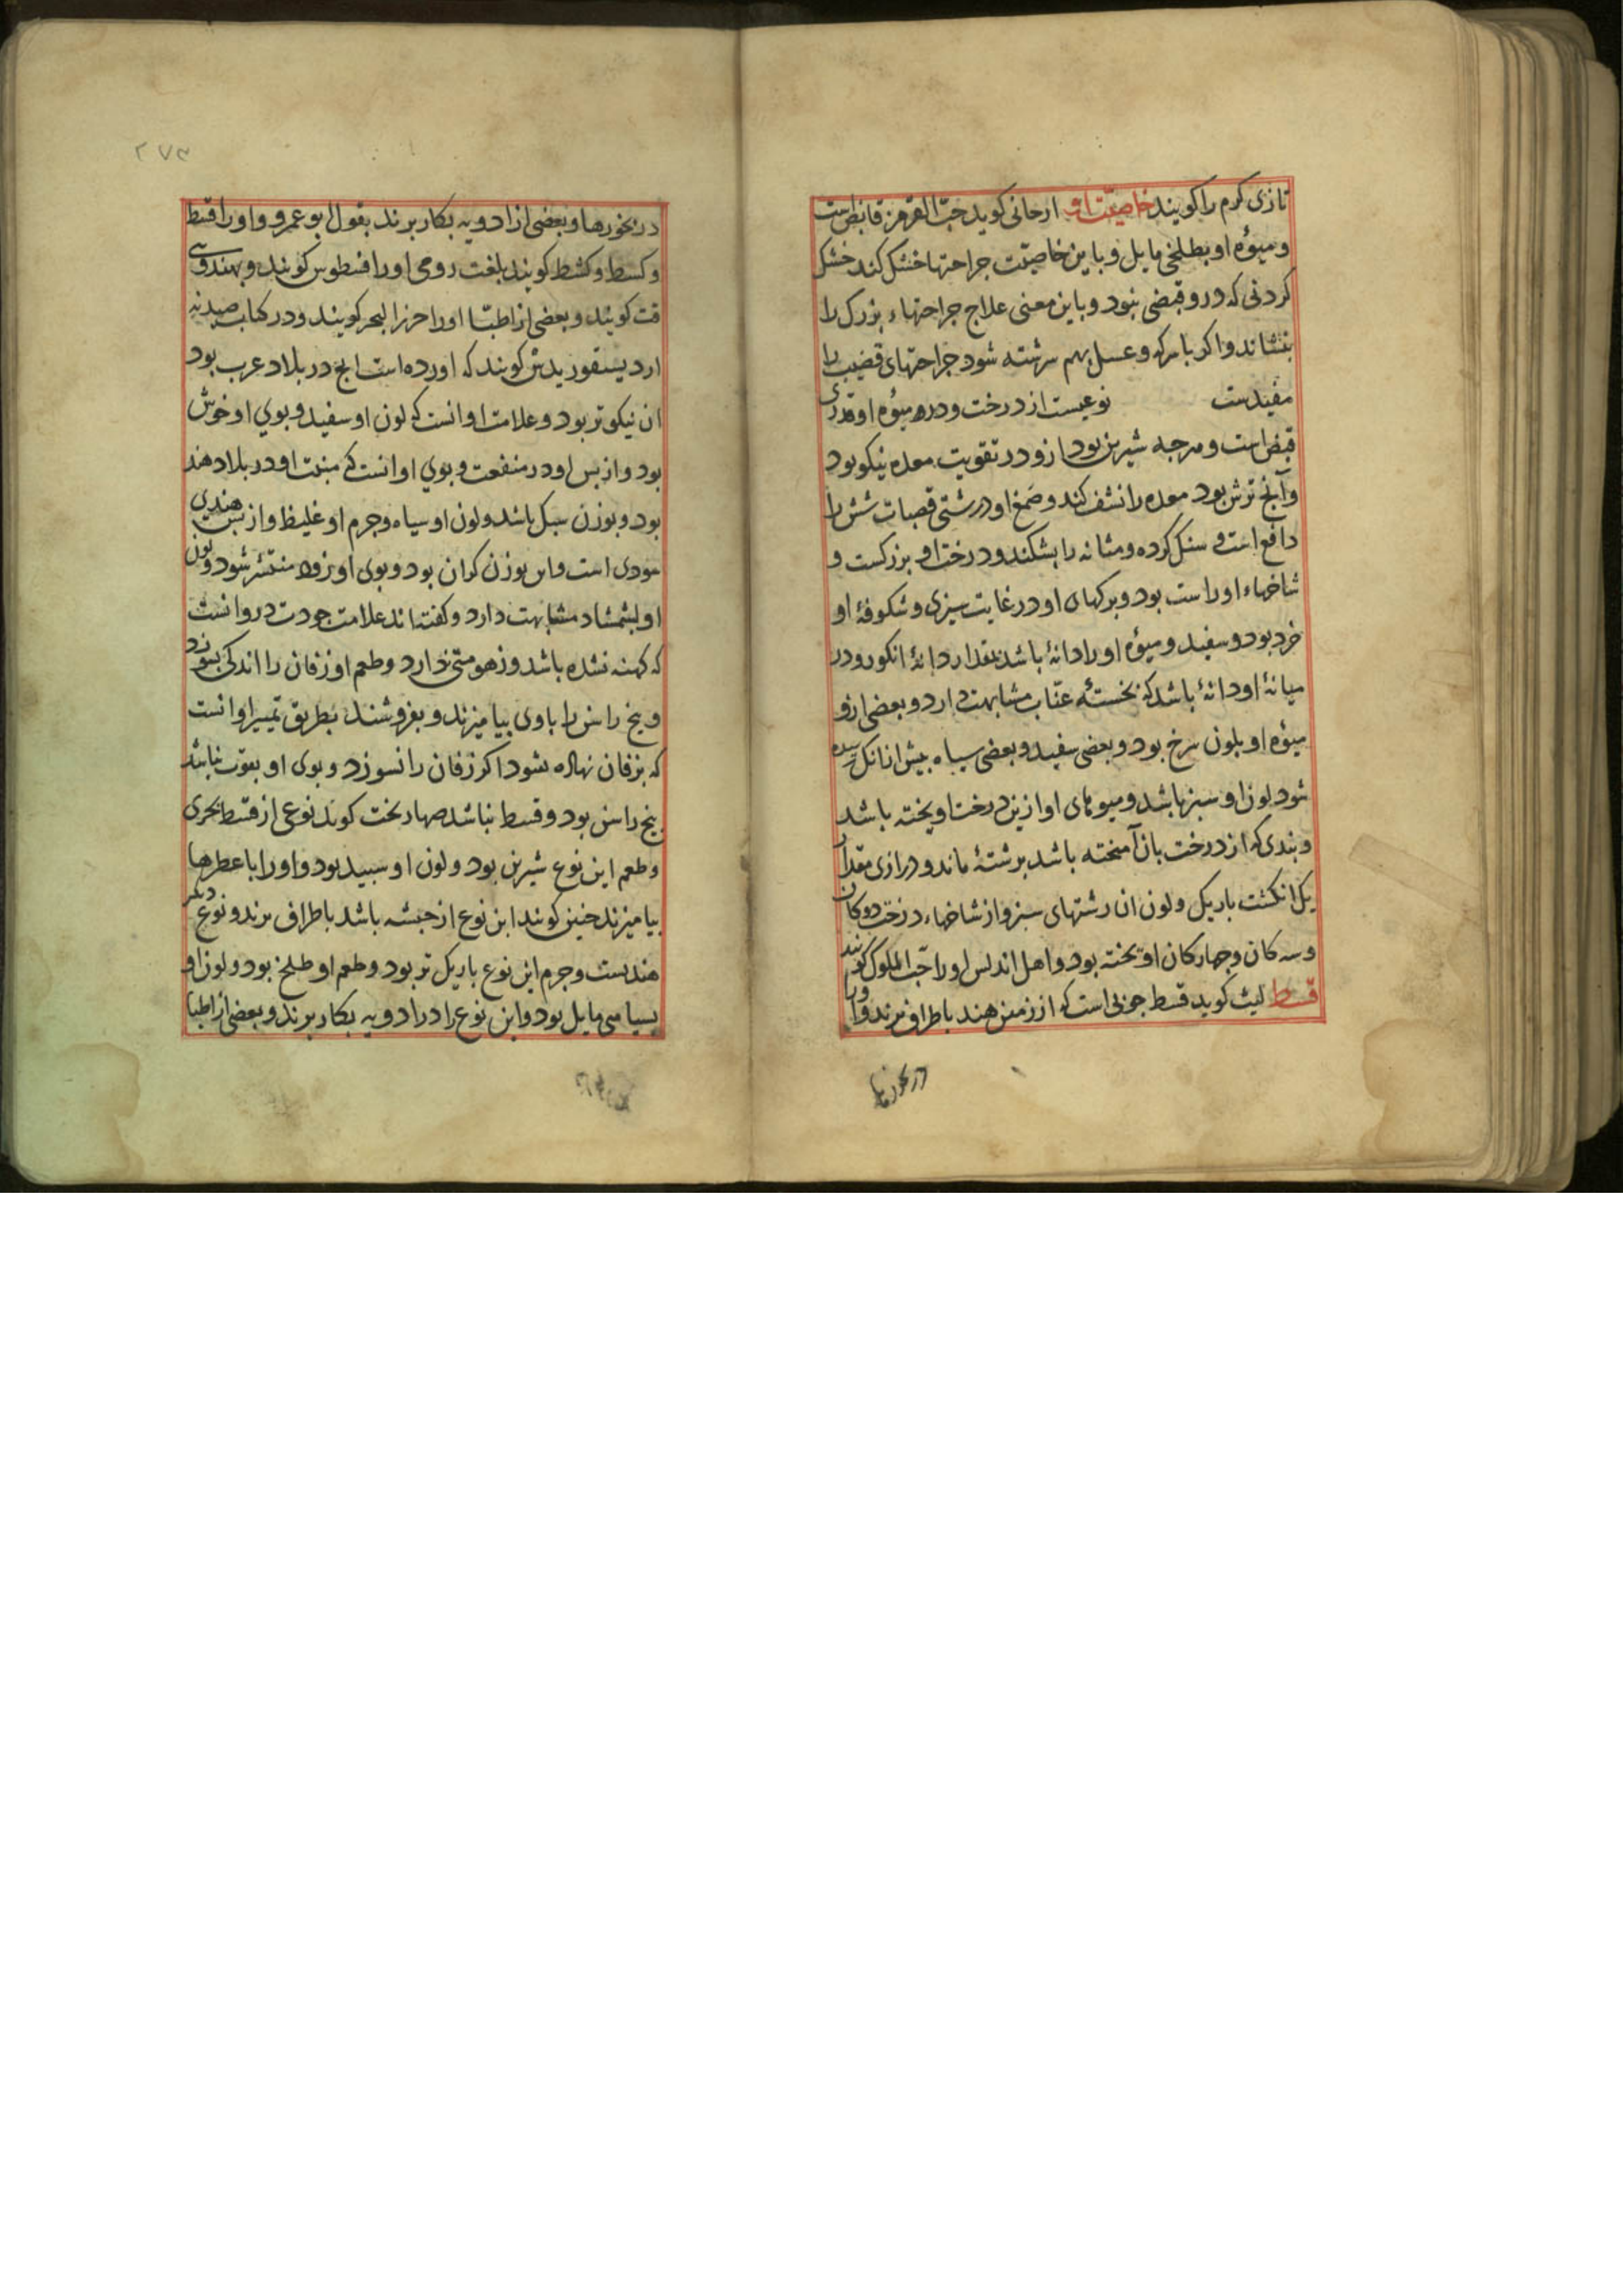 تازی کرم را کویند خاصیت او ارجانی کوید حبّ القرمز قابض است
و میوهٔ او بطلخی مایل و باین خاصیّت جراحتها خشک کند خشک
کردنی که درو قبضی نبود و باین معنی علاج جراحتهاء بزرک را
بنشاند و اکر با سرکه و عسل بهم سرشته شود جراحتهای قضیب را
مفیدست نوعیست از درخت و در میوهٔ او قدری
قبض است و هرجه شیرین بود ازو در تقویت معده نیکو بود
و آنج ترش بود معده را نشف کند و صمغ او درشتی قصبات شش را
دافع است و سنک کرده و مثانه را بشکند و درخت او بزرکست و
شاخهاء او راست بود و برکهای او در غایت سبزی و شکوفهٔ او
خرد بود و سفید و میوهٔ او را دانهٔ باشد بمقدار دانهٔ انکور و در
میانهٔ او دانهٔ باشد که بخستهٔ عنّاب مشابهت دارد و بعضی ازو
میوهٔ او بلون سرخ بود و بعضی سفید و بعضی سیاه بیش از انک رسیده
شود لون او سبز باشد و میوهای او ازین درخت اویخته باشد
و بندی که از درخت بان آمیخته باشد برشتهٔ ماند و درازی مقدار
یک انکشت باریک و لون ان رشتهای سبز و از شاخهاء درخت دوکان
و سه کان و جهارکان اویخته بود و اهل اندلس او را حبّ الملوک کویند
قسط لیث کوید قسط جوبی است که از زمین هند باطراف برند و او را
در بخورها
در بخورها و بعضی از ادویه بکار برند بقول ابو عمرو و او را قسط
و کسط و کشط کویند بلغت رومی او را قسطوس کویند و بهندوی
قت کویند و بعضی از اطبّا او را حرز البحر کویند و در کتاب صیدنه
ارد دیسقوریدس کویند که اورده است انج در بلاد عرب بود
ان نیکوتر بود و علامت او انست که لون او سفید و بوی او خوش
بود و از بس او در منفعت و بوی او انست که منبت او در بلاد هند
بود و بوزن سبک باشد و لون او سیاه و جرم او غلیظ و از بس هندی
سودی است و این بوزن کران بود و بوی او زود منتشر شود و لون
او بشمشاد مشابهت دارد و کفته اند علامت جودت درو انست
که کهنه نشده باشد و زهومتی ندارد و طعم او زفان را اندکی بسوزد
و بیخ راسن را با وی بیامیزند و بفروشند بطریق تمییز او انست
که بزفان نهاده شود اکر زفان را نسوزد و بوی او بقوت نباشد
بیخ راسن بود و قسط نباشد صهاربخت کوید نوعی از قسط بحری
و طعم این نوع شیرین بود و لون او سبید بود و او را با عطرها
بیامیزند جنین کویند این نوع از حبشه باشد باطراف برند و نوع دیکر
هندیست و جرم این نوع باریک تر بود و طعم او طلخ بود و لون او
بسیاهی مایل بود و این نوع را در ادویه بکار برند و بعضی از اطبا